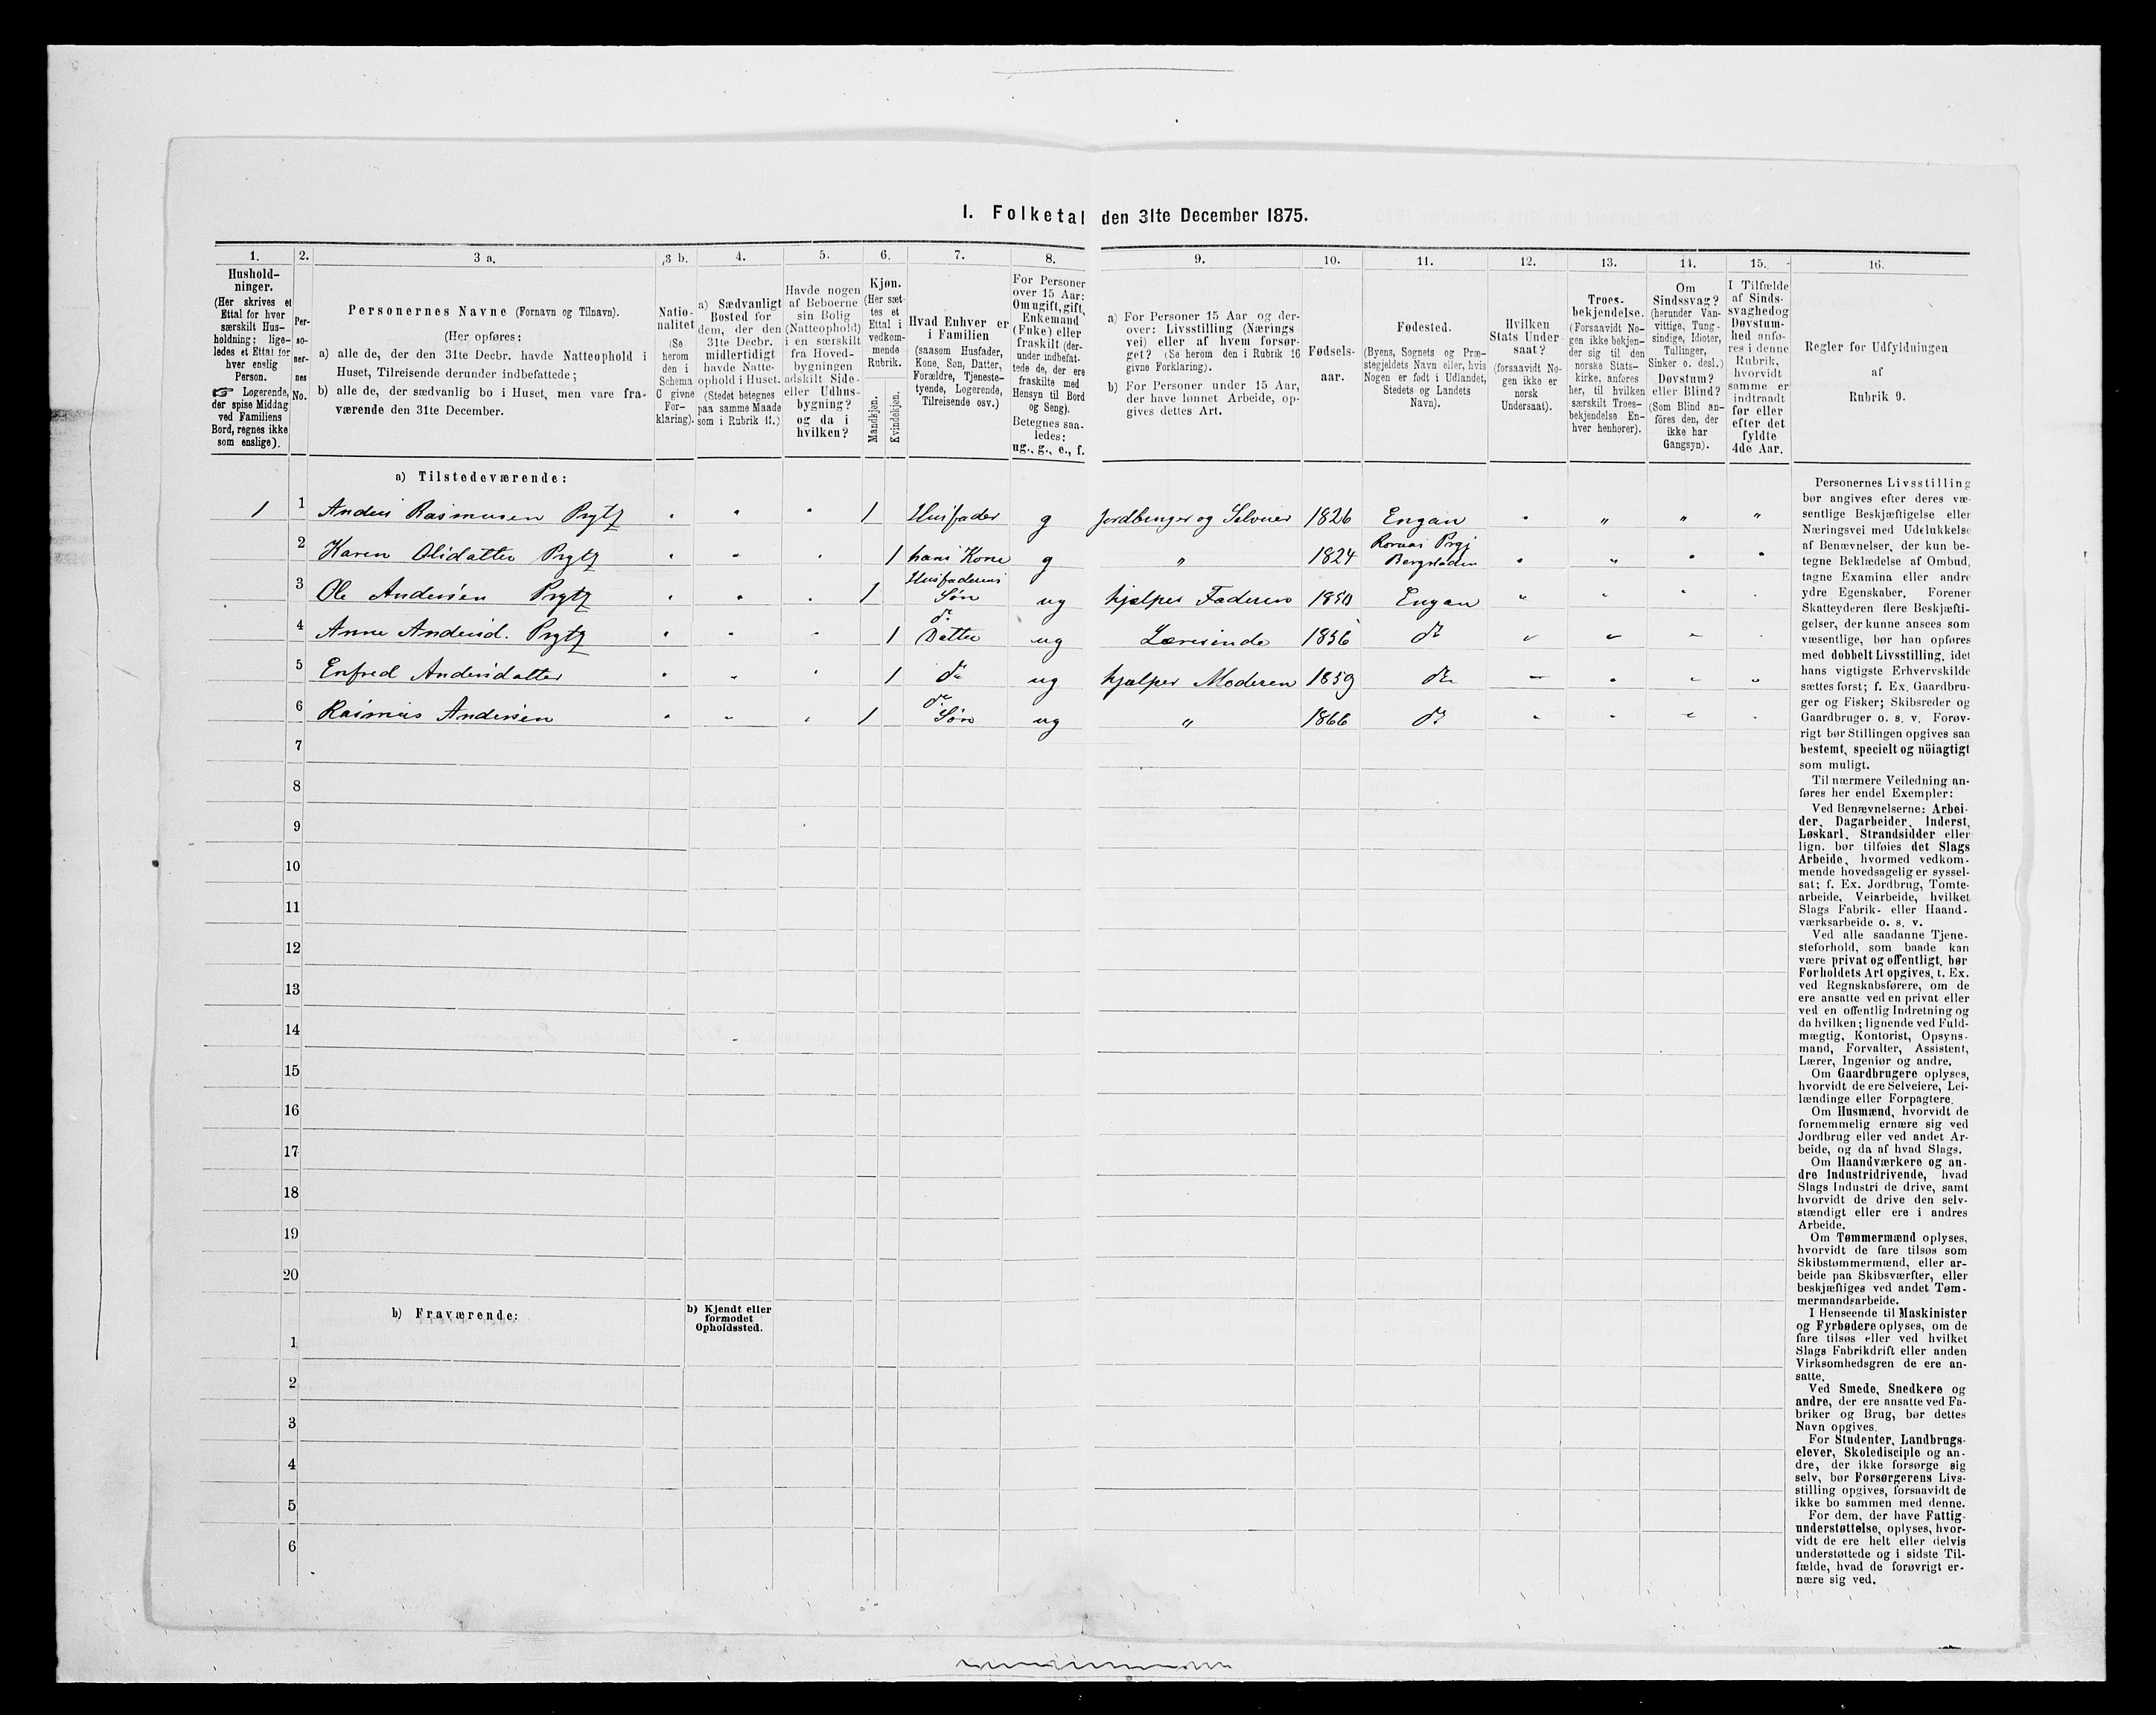 I. Folketal den 31te December 1875.
1. 2. 3 a. 3 b. 4. 5. 6. 7. 8. 9. 10. 11. 12. 13. 14. 15. 16.
Hushold-
ninger.
(Her skrives et
Ettal for hver
særskilt Hus-
holdning; lige-
ledes et Ettal for
hver enslig
Person.
☞ Logerende,
der spise Middag
ved Familiens
Bord, regnes ikke
som enslige).
Per-
so-
ner-
nes
No.
Personernes Navne (Fornavn og Tilnavn).
(Her opføres:
a) alle de, der den 31te Decbr. havde Natteophold i
Huset, Tilreisende derunder indbefattede;
b) alle de, der sædvanlig bo i Huset, men vare fra-
værende den 31te December.
Natio-
nalitet
(Se
herom
den i
Schema
6 givne
For-
klaring).
a) Sædvanligt
Bosted for
dem, der den
31te Decbr.
midlertidigt
havde Natte-
ophold i Huset.
(Stedet betegnes
paa samme Maade
som i Rubrik 11.)
Havde nogen
af Beboerne
sin Bolig
(Natteophold)
i en særskilt
fra Hoved-
bygningen
adskilt Side-
eller Udhus-
bygning?
og da i
hvilken?
Kjøn.
(Her sæt-
tes et
Ettal i
vedkom-
mende
Rubrik.
Mandkjøn.
Kvindekjøn.
Hvad Enhver er
i Familien
(saasom Husfader,
Kone, Søn, Datter,
Forældre, Tjeneste-
tyende, Logerende,
Tilreisende osv.)
For Personer
over 15 Aar:
Om ugift, gift,
Enkemand
(Enke) eller
fraskilt (der-
under indbefat-
tede de, der ere
fraskilte med
Hensyn til Bord
og Seng).
Betegnes saa-
ledes:
ug., g., e., f.
a) For Personer 15 Aar og der-
over: Livsstilling (Nærings
vei) eller af hvem forsør-
get? (Se herom den i Rubrik 16
givne Forklaring).
b) For Personer under 15 Aar,
der have lønnet Arbeide, op-
gives dettes Art.
Fødsels-
aar.
Fødested.
(Byens, Sognets og Præ-
stegjeldets Navn eller, hvis
Nogen er født i Udlandet,
Stedets og Landets
Navn).
Hvilken
Stats Under
saat?
(forsaavidt No-
gen ikke er
norsk
Undersaat).
Troes-
bekjendelse.
(Forsaavidt No-
gen ikke bekjen-
der sig til den
norske Stats-
kirke, anføres
her, til hvilken
særskilt Troes-
bekjendelse En-
hver henhører).
Om
Sindssvag?
(herunder Van-
vittige, Tung-
sindige, Idioter,
Tullinger,
Sinker o. desl.)
Døvstum?
eller Blind?
(Som Blind an-
føres den, der
ikke har
Gangsyn).
I Tilfælde
af Sinds-
svaghed og
Døvstum-
hed anfø-
res i denne
Rubrik,
hvorvidt
samme er
indtraadt
før eller
efter det
fyldte
4de Aar.
Regler for Udfyldningen
af
Rubrik 9.
a) Tilstedeværende:
1 1 Anders Rasmusen Prytz " " " 1 Husfader g Jordbruger og Selveier 1826 Engan " " " "
2 Karen Olsdatter Prytz " " " 1 hans Kone g " 1824 Roraas Prgj Bergstaden " " " "
3 Ole Andersen Prytz " " " 1 Husfaderens Søn ug hjælper Faderen 1850 Engan " " " "
4 Anne Andersd. Prytz " " " 1 do Datter ug Lærerinde 1856 do " " " "
5 Enfred Andersdatter " " " 1 do ug hjælper Moderen 1859 do " " " "
6 Rasmus Andersen " " " 1 do Søn ug " 1866 do " " " "
7
8
9
10
11
12
13
14
15
16
17
18
19
20
b) Fraværende:
b) Kjendt eller
formodet
Opholdssted.
1
2
3
4
5
6
Personernes Livsstilling
bør angives efter deres væ-
sentlige Beskjæftigelse eller
Næringsvei med Udelukkelse
af Benævnelser, der kun be-
tegne Beklædelse af Ombud,
tagne Examina eller andre
ydre Egenskaber. Forener
Skatteyderen flere Beskjæfti-
gelser, der kunne ansees som
væsentlige, bør han opføres
med dobbelt Livsstilling, idet
hans vigtigste Erhvervskilde
sættes først; f. Ex. Gaardbru-
ger og Fisker; Skibsreder og
Gaardbruger o. s. v. Forøv-
rigt bør Stillingen opgives saa
bestemt, specielt og nöiagtigt
som muligt.
Til nærmere Veiledning an-
føres her endel Exempler:
Ved Benævnelserne: Arbei-
der, Dagarbeider, Inderst,
Løskarl, Strandsidder eller
lign. bør tilføies det Slags
Arbeide, hvormed vedkom-
mende hovedsagelig er syssel-
sat; f. Ex. Jordbrug, Tomte-
arbeide, Veiarbeide, hvilket
Slags Fabrik- eller Haand-
værksarbeide o. s. v.
Ved alle saadanne Tjene-
steforhold, som baade kan
være privat og offentligt, bør
Forholdets Art opgives, t. Ex.
ved Regnskabsførere, om de
ere ansatte ved en privat eller
ved en offentlig Indretning og
da hvilken; lignende ved Fuld-
mægtig, Kontorist, Opsyns-
mand, Forvalter, Assistent,
Lærer, Ingeniør og andre.
Om Gaardbrugere oplyses,
hvorvidt de ere Selveiere, Lei-
lændinge eller Forpagtere.
Om Husmænd, hvorvidt de
fornemmelig ernære sig ved
Jordbrug eller ved andet Ar-
beide, og da af hvad Slags.
Om Haandværkere og an-
dre Industridrivende, hvad
Slags Industri de drive, samt
hvorvidt de drive den selv-
stændigt eller ere i andres
Arbeide.
Om Tømmermænd oplyses,
hvorvidt de fare tilsøs som
Skibstømmermænd, eller ar-
beide paa Skibsværfter, eller
beskjæftiges ved andet Tøm-
mermandsarbeide.
I Henseende til Maskinister
og Fyrbødere oplyses, om de
fare tilsøs eller ved hvilket
Slags Fabrikdrift eller anden
Virksomhedsgren de ere an-
satte.
Ved Smede, Snedkere og
andre, der ere ansatte ved Fa-
briker og Brug, bør dettes
Navn opgives.
For Studenter, Landbrugs-
elever, Skoledisciple og an-
dre, der ikke forsørge sig
selv, bør Forsørgerens Livs-
stilling opgives, forsaavidt de
ikke bo sammen med denne.
For dem, der have Fattig-
understøttelse, oplyses, hvor-
vidt de ere helt eller delvis
understøttede og i sidste Til-
fælde, hvad de forøvrigt er-
nære sig ved.